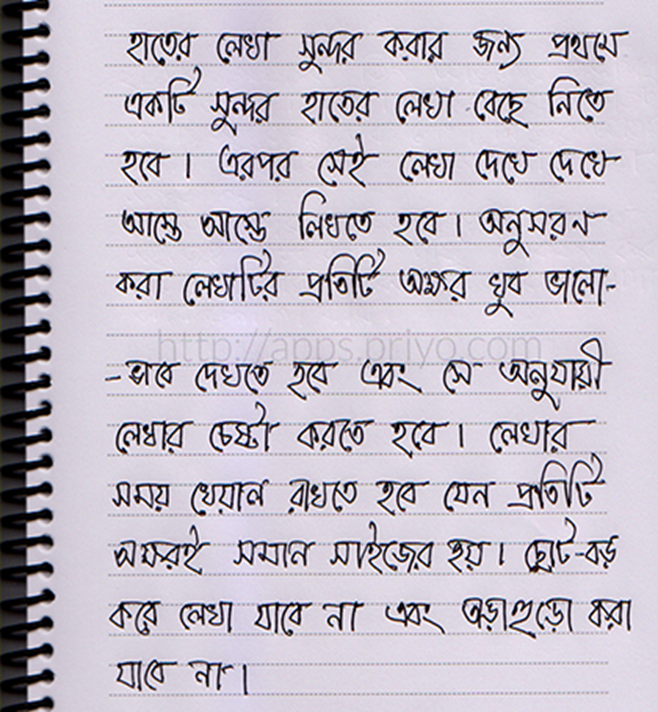 হাতের লেখা সুন্দর করার জন্য প্রথমে
একটি সুন্দর হাতের লেখা বেছে নিতে
হবে। এরপর সেই লেখা দেখে দেখে
আস্তে আস্তে লিখতে হবে। অনুসরন
করা লেখাটির প্রতিটি অক্ষর খুব ভালো-
http://apps.priyo.com
-ভাবে দেখতে হবে এবং সে অনুযায়ী
লেখার চেষ্টা করতে হবে। লেখার
সময় খেয়াল রাখতে হবে যেন প্রতিটি
অক্ষরই সমান সাইজের হয়। ছোট-বড়
করে লেখা যাবে না এবং তড়াহুড়ো করা
যাবে না।